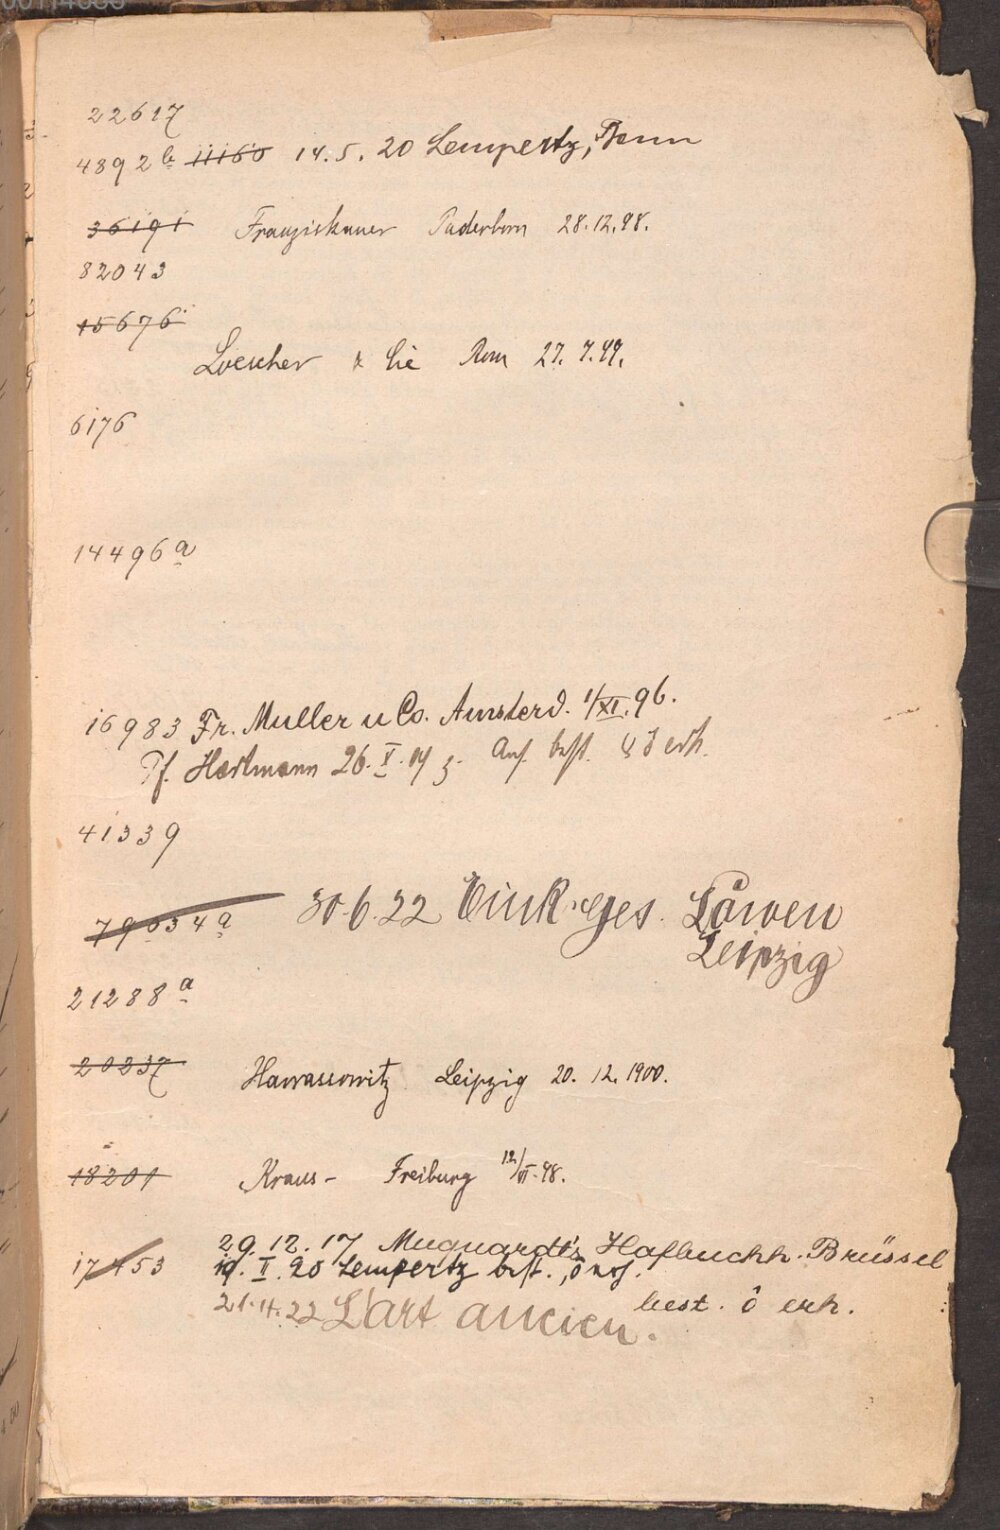 22617
4892b 11160 14.5.20 Lempertz, Bonn
36191 Franziskaner Paderborn 28.12.98.
82043
15676
Loescher & Cie Rom 27.7.99.
6176
14496a
16983 Fr. Muller u Co. Amsterd. 1/XI.96.
Pf. Hartmann 26.V.14 erh.
41339
79634a 30.6.22 Eink. ges. Löwen
Leipzig
21288a
20237 Harrassowitz Leipzig 20.12.1900.
18201 Kraus - Freiburg 12/VI.98.
17453 29.12.17 Muquardt's Hofbuchh. Brüssel
19.I.20 Lempertz best.
best. ô erh.
21.4.22 L'art ancien.